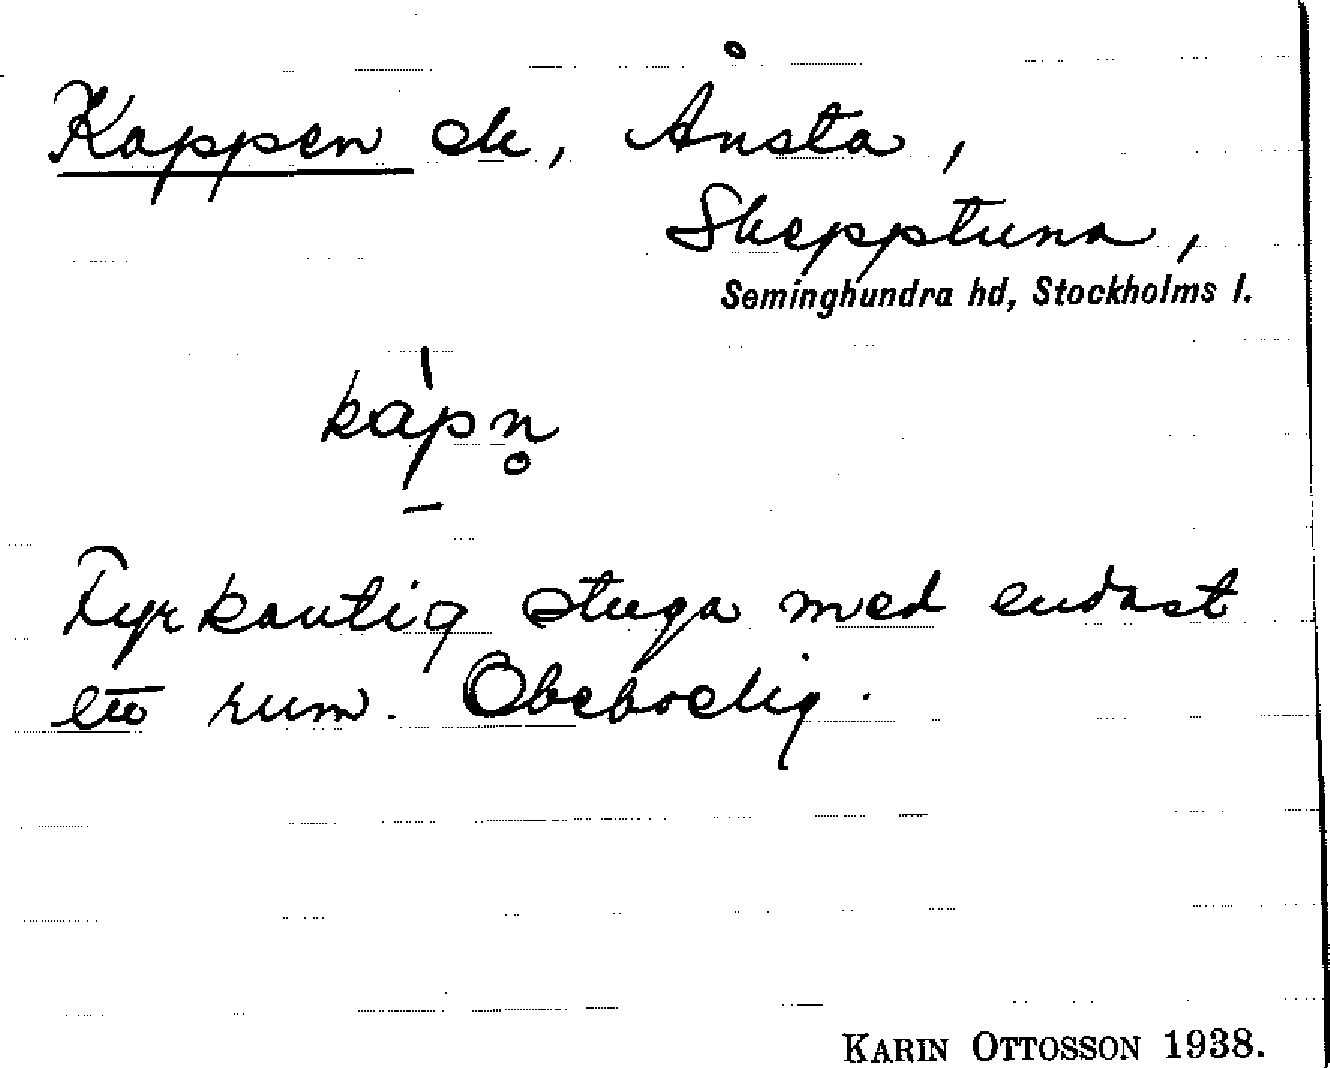 Kappen de, Ånsta,
Skepptuna,
Seminghundra hd, Stockholms l.
kápn̥
Fyrkantig stuga med endast
ett rum. Obeboelig.
KARIN OTTOSSON 1938.